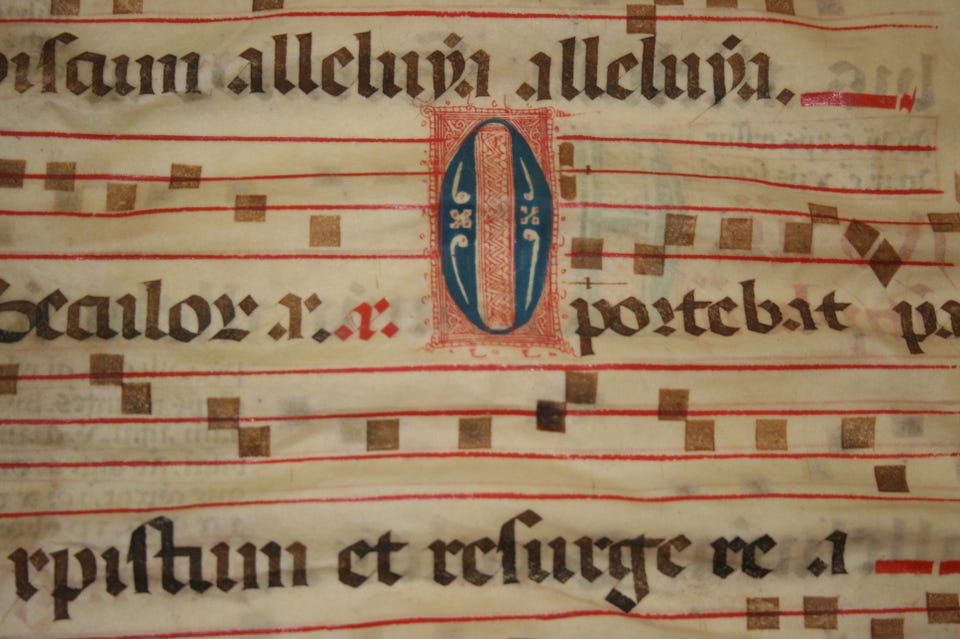 iſcum alleluya alleluya.
Seculoꝝ Oportebat pa
xpiſtum et reſurge re a